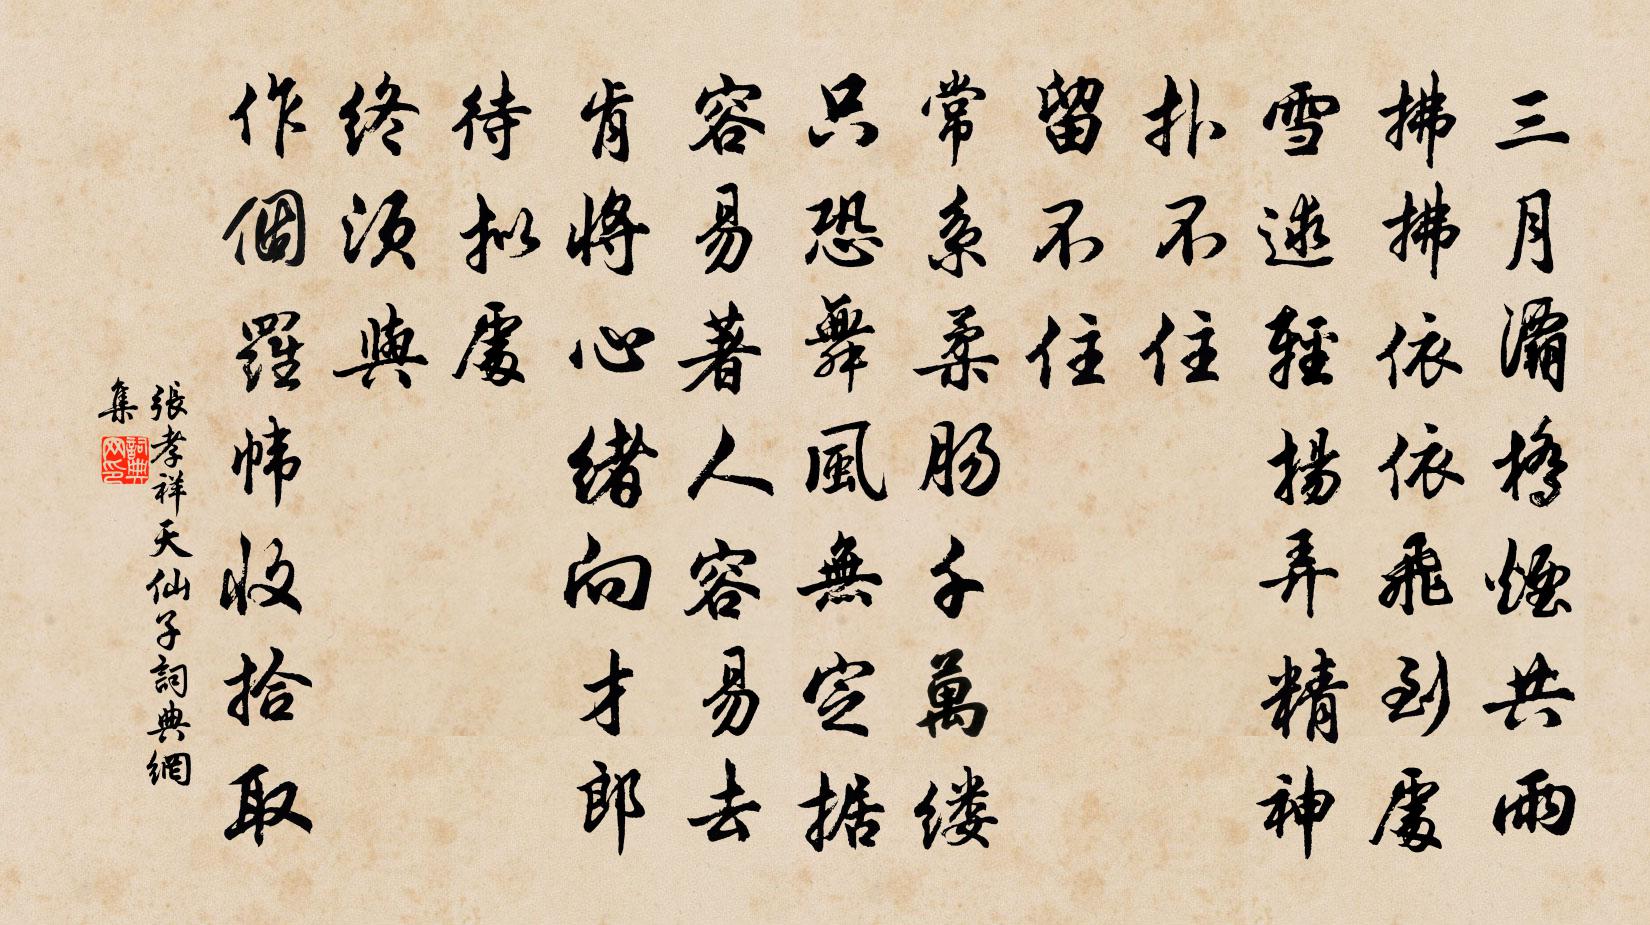 三月灞橋煙共雨
拂拂依依飛到處
雪逑輕揚弄精神
扑不住
留不住
常系柔肠千萬缕
只恐舞風無定据
容易著人容易去
肯將心緒向才郎
待拟處
终須與
作個羅帏收拾取
張孝祥天仙子詞典網
集
詞典網印